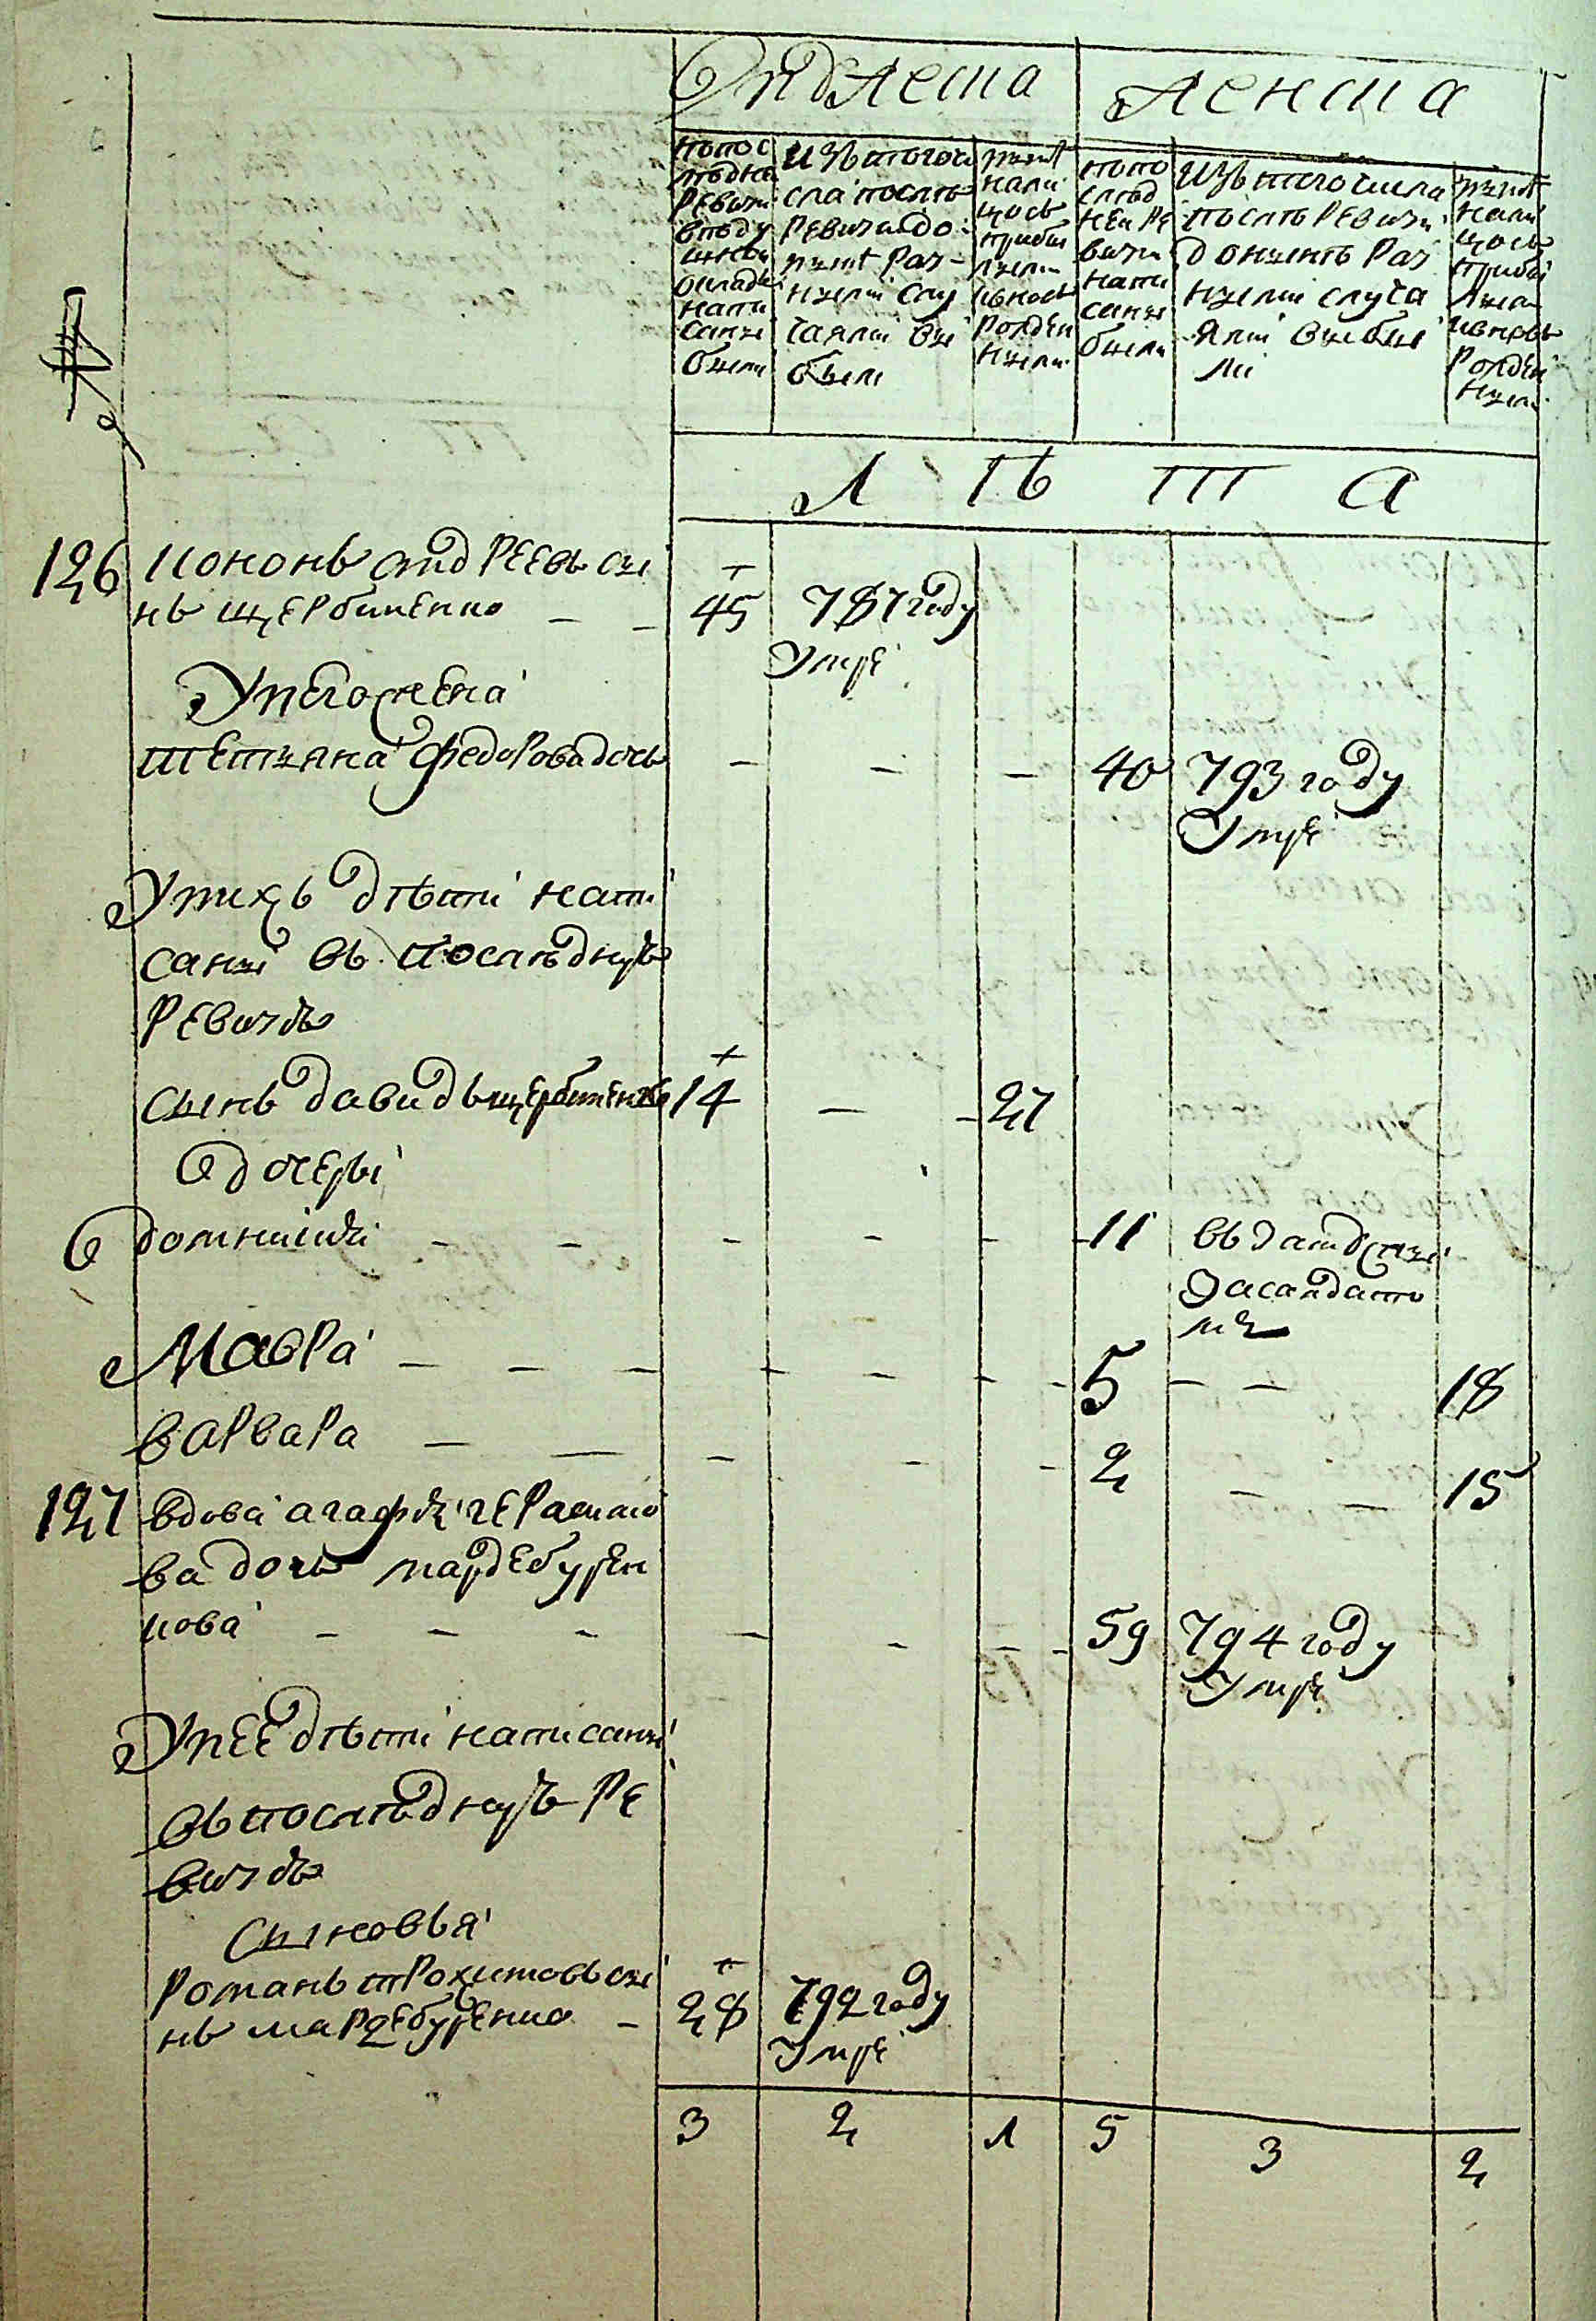 Мужеска
Женска
по пос
лѣдней
Ревизи
в поду
шном
окладе
напи
саны
были
Изъ того чи
сла послѣ
Ревизи до
ныне раз
ными слу
чаями вы
были
ныне
нали
цось
прибы
лыми
и вновь
рожден
ными
по по
слѣд
ней Ре
визи
напи
саны
были
Изъ того числа
послѣ Ревизи
до нынѣ раз
ными случа
ями выбы
ли
ныне
нали
цось
прибы
лыми
и вновь
рожден
ными
Л ѣ т а
126 Кононъ андреевъ сы
нъ щербиненко - - 45 787 году
Умре
У него жена
Тетяна федорова дочь - - - 40 793 году
Умре
У них дѣти напи
саны въ послѣдную
Ревизю
сынъ давидъ щербиненко 14 - - 27
дочери
домникия - - - - - 11 въдата въ
за салдато
мъ
Мавра - - - - - - - 5 - - 18
варвара - - - - - 2 - - 15
127 вдова агафия герасимо
ва дочь
кова - - - - - - - 59 794 году
Умре
У нее дѣти написаны
въ послѣдную Ре
визю
Сыновья
Романъ трохимовъ сы
нъ - 28 792 году
Умре
3 2 1 5 3 2